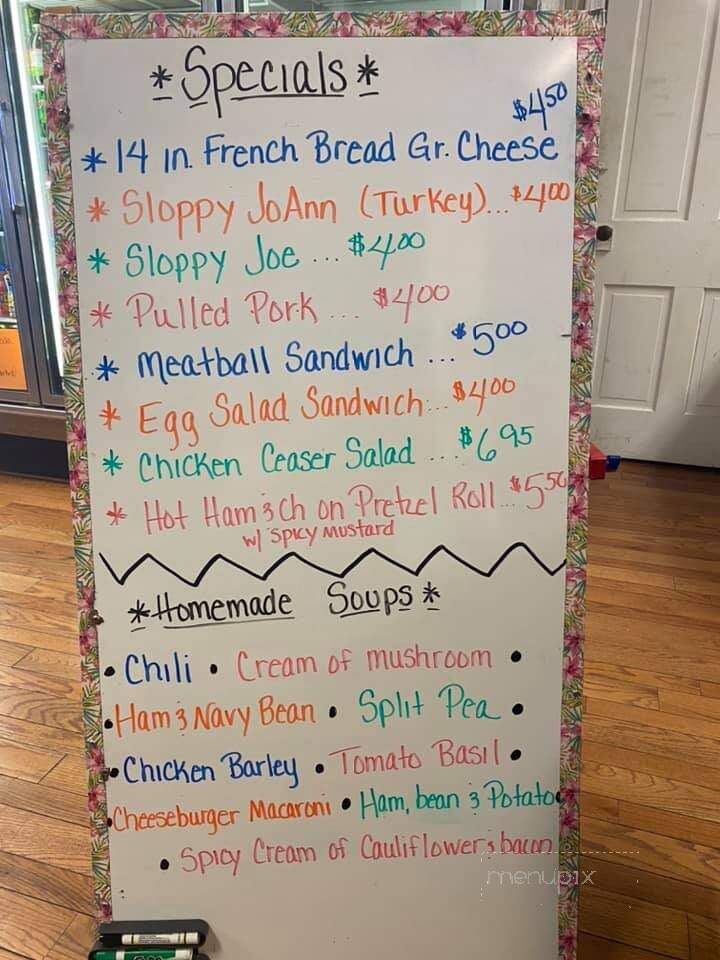 *Specials*
$4.50
* 14 in. French Bread Gr. Cheese
* Sloppy JoAnn (Turkey)... $4.00
* Sloppy Joe ... $4.00
* Pulled Pork ... $4.00
* Meatball Sandwich ... $5.00
* Egg Salad Sandwich... $4.00
* Chicken Ceaser Salad ... $6.95
* Hot Ham & ch on Pretzel Roll... $5.50
w/ Spicy Mustard
*Homemade Soups*
• Chili • Cream of mushroom •
• Ham & Navy Bean • Split Pea •
• Chicken Barley • Tomato Basil •
• Cheeseburger Macaroni • Ham, bean & Potato •
• Spicy Cream of Cauliflower & bacon
menupix